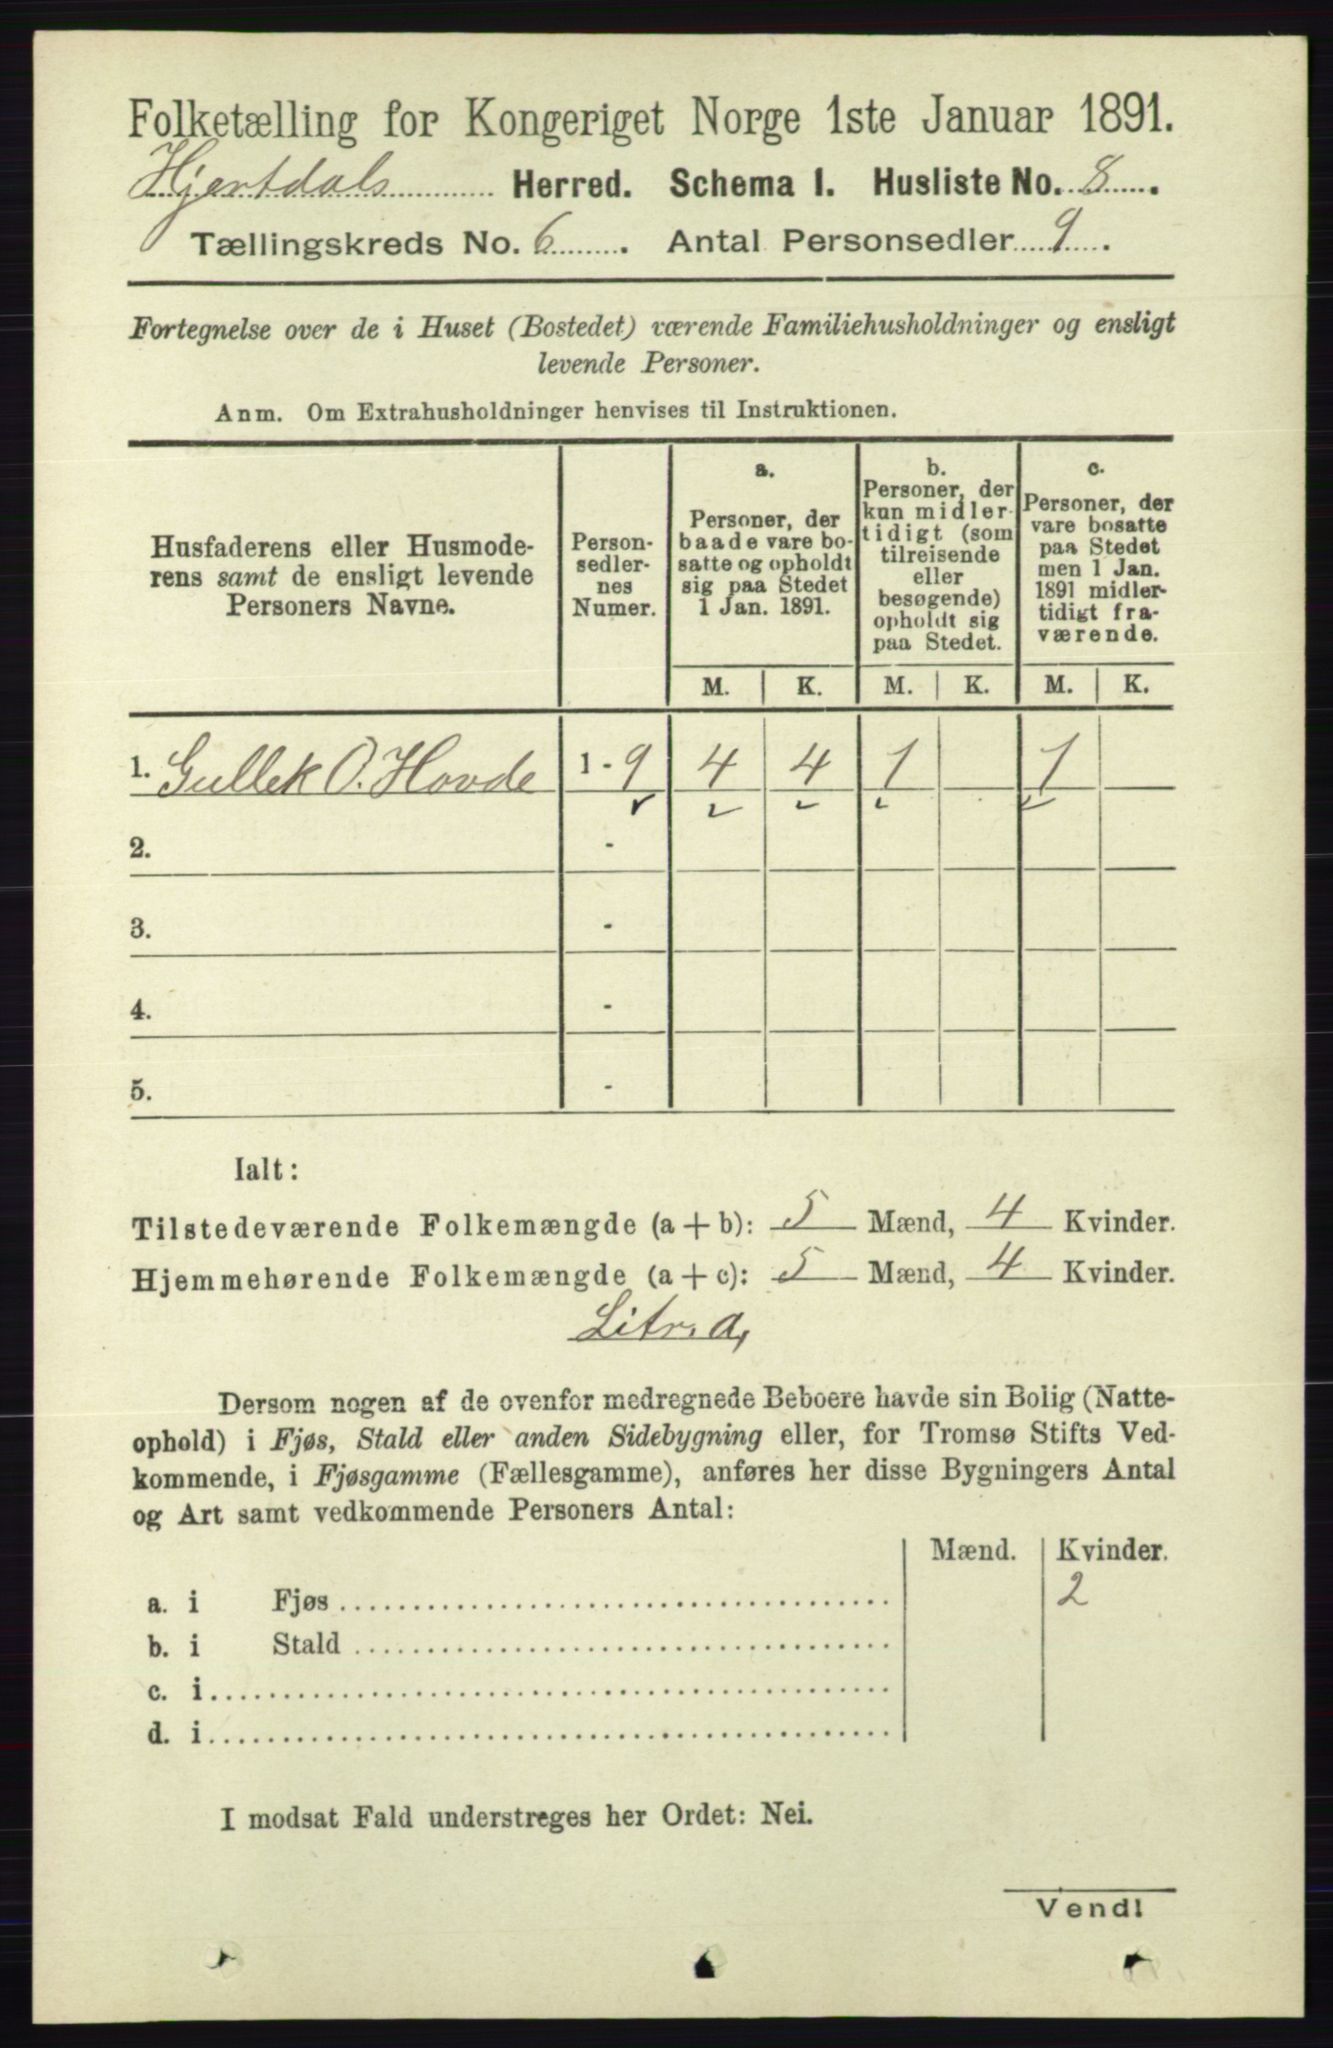 Folketælling for Kongeriget Norge 1ste Januar 1891.
Hjertdals Herred. Schema 1. Husliste No. 8.
Tællingskreds No. 6. Antal Personsedler 9.
Fortegnelse over de i Huset (Bostedet) værende Familiehusholdninger og ensligt
levende Personer.
Anm. Om Extrahusholdninger henvises til Instruktionen.
Husfaderens eller Husmode-
rens samt de ensligt levende
Personers Navne.
Person-
sedler-
nes
Numer.
a.
Personer, der
baade vare bo-
satte og opholdt
sig paa Stedet
1 Jan. 1891.
b.
Personer, der
kun midler-
tidigt (som
tilreisende
eller
besøgende)
opholdt sig
paa Stedet.
c.
Personer, der
vare bosatte
paa Stedet
men 1 Jan.
1891 midler-
tidigt fra-
værende.
M. K. M. K. M. K.
1. Gullek O. Hovde 1 - 9 4 4 1 1
2. -
3. -
4. -
5. -
Ialt:
Tilstedeværende Folkemængde (a + b): 5 Mænd, 4 Kvinder.
Hjemmehørende Folkemængde (a + c): 5 Mænd, 4 Kvinder.
Litr. a,
Dersom nogen af de ovenfor medregnede Beboere havde sin Bolig (Natte-
ophold) i Fjøs, Stald eller anden Sidebygning eller, for Tromsø Stifts Ved-
kommende, i Fjøsgamme (Fællesgamme), anføres her disse Bygningers Antal
og Art samt vedkommende Personers Antal:
Mænd. Kvinder.
a. i Fjøs 2
b. i Stald
c. i
d. i
I modsat Fald understreges her Ordet: Nei.
Vend!